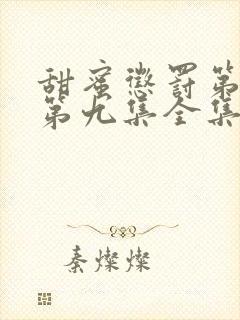 甜蜜懲罰第
第九集全集
秦燦燦